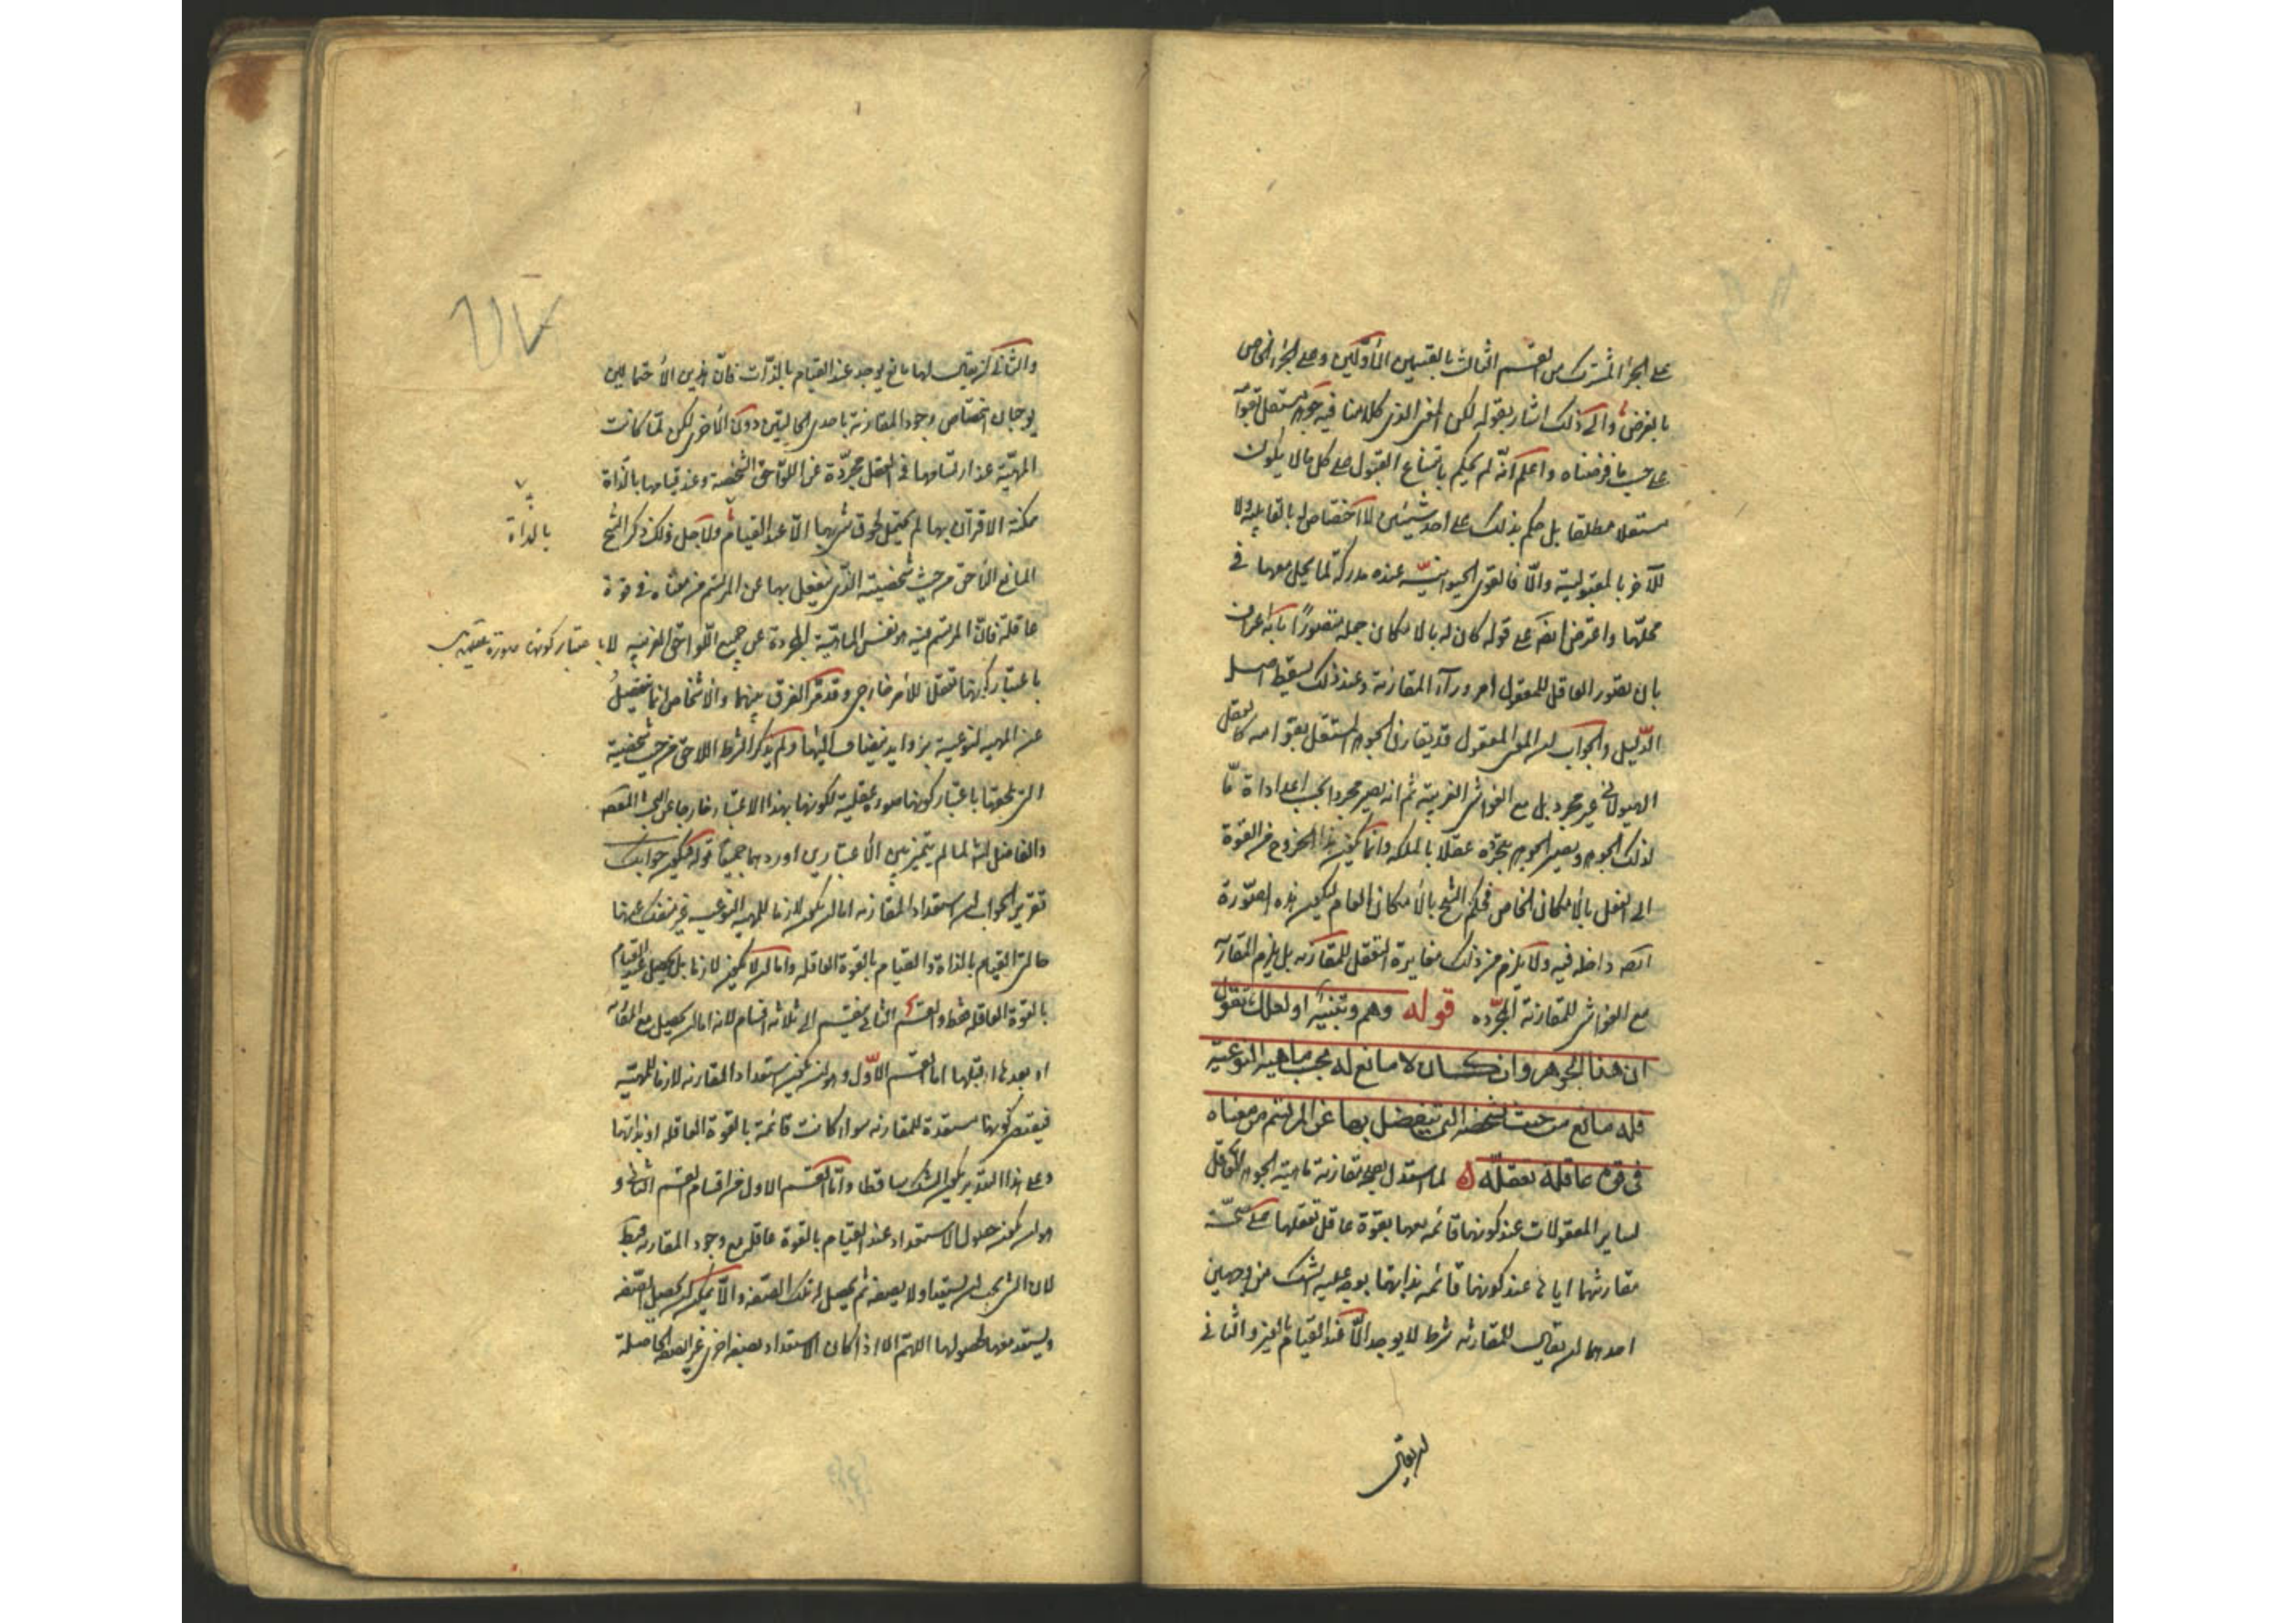 على الجزء المشترك من القسم الثالث بالقسمين الأولين وعلى الجزء الخاص
بالفرض والى ذلك اشار بقوله لكن المعنى الذى كلامنا فيه جوهر مستقل بقوامه
على حسب ما فرضناه واعلم انّه لم يحكم بامتناع القبول على كل ما لا يكون
مستقلا مطلقا بل حكم بذلك على احد شيئين لا اختصاص له بالقابلية ولا
للآخر بالمقبولية والّا فالقوى الحيوانيّة عنده مدركة لما يحل معها فى
محلّها واعترض ايضا على قوله كان له بالامكان جعله متصورًا بانه اعراف
بان تصور العاقل للمعقول امر ورآء المقارنة وعند ذلك يسقط اصل
الدّليل والجواب ان المعنى المعقول قد يقارن الجوهر المستقل بقوامه كالعقل
الهيولانى غير مجرد بل مع الغواشى الغريبة ثم انه يصير مجردا بحسب اعداد اداة مّا
لذلك الجوهر ويصير الجوهر بتجرّده عقلا بالملكه وانما يكون هذا الخروج من القوة
الى الفعل بالأمكان الخاص فحكم الشيخ بالأمكان العام ليكون هذه الصّورة
ايضا داخله فيه ولا يلزم من ذلك مغايرة التعقل للمقارنه بل يلزم المقارنه
مع الغواشى للمقارنة المجرّده قوله وهم وتنبيه او لعلك تقول
ان هذا الجوهر وان كان لا مانع له بحسب ماهيته النوعية
فله مانع من حيث شخصيته التى ينفصل بها عن المرتسم من معناه
فى قوة عاقلة تعقله لما استدل بصحة مقارنة ماهيته الجوهر العاقل
لساير المعقولات عند كونها قائمه معها بقوة عاقل تعقلها على صحّة
مقارنتها اياها عند كونها قائمه بذاتها يوجه عليه الشك من وجهين
احدهما ان يقال للمقارنه شرط لا يوجد الّا عند القيام بالغير والثانى
ان يقال
والثانى ان يقال لها مانع يوجد عند القيام بالذّات فانّ هذين الأحتمالين
يوجبان اختصاص وجود المقارنة باحدى الحالتين دون الأخرى لكن لمّا كانت
المهيّة عند ارتسامها فى العقل مجرّدة عن اللوّاحق الشخصية وعند قيامها بالذاة
ممكنة الاقتران بها لم يحتمل لحوق شئ بها الّا عند القيام ولأجل ذلك ذكر الشيخ
بالذاة
المانع اللأحق من حيث شخصيته الذّى ينفصل بها عن المرتسم من معناه فى قوة
عاقلة فانّ المرتسم فيه هو نفس الماهيّة المجرّدة عن جميع اللّواحق الغريبه لا باعتبار كونها صورة عقلية بل
باعتبار كونها تعقلا للأمر خارجى وقد مرّ الفرق بينهما والأشخاص انما تنفصل
عن المهيه النوعية بزوايد ينضاف اليها ولم يذكر الشرط اللاحق من حيث شخصيته
التى تلحقها باعتبار كونها صورة عقلية لكونها بهذا الاعتبار خارجا عن البحث المقصود
والفاضل الشارح لما لم يتميز بين الأعتبارين اوردهما جميعًا قوله فيكون جوابك
تقرير الجواب ان استعداد المقارنه اما ان يكون لازما للمهيه النوعيه غير منفك عنها
حالتى القيام بالذاة والقيام بالقوة العاقله واما ان لا يكون لازما بل يحصل عند القيام
بالقوة العاقله فقط والقسم الثانى ينقسم الى ثلاثه اقسام لانه اما ان يحصل مع المقارنه
او بعدها او قبلها اما القسم الأوّل وهو ان يكون استعداد المقارنه لازما للمهيّه
فيقتضى كونها مستعدة للمقارنه سواء كانت قائمة بالقوة العاقله او بذاتها
وعلى هذا التقدير يكون الشك ساقطا وامّا القسم الاول من اقسام القسم الثانى و
هو ان يكون حصول الاستعداد عند القيام بالقوة عاقله مع وجود المقارنه فبط
لان الشئ يجب ان يستعد اولا بصفه ثم يحصل له تلك الصّفه والّا يمكن ان يحصل الصّفه
ويستعد معها لحصولها اللهم الا اذا كان الاستعداد بصفه اخرى غير الصفه الحاصله